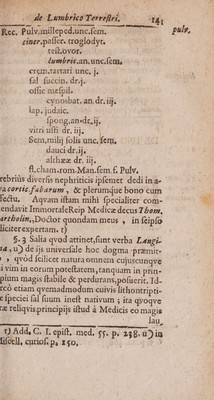 de Lumbrico Terrestri. 141
Rec. Pulv. milleped. unc. sem. pulv.
ciner. passer. troglodyr.
test. ovor.
lumbric. an. unc. sem.
crem. tartari unc. j.
sal succin. dr. j.
ossic mespil.
cynosbat. an dr. iij.
lap. judaic.
spong. an. dr. ij.
vitri usti dr. iij.
Sem. milij solis unc. sem.
dauci dr. ij.
althææ dr. ij.
fl. cham. rom. Man. sem. s. Pulv.
rebrius diversis nephriticis ipsemet dedi in a-
va cortic. fabarum, & plerumque bono cum
fectu. Aquam istam mihi specialiter com-
endavit Immortale Reip Medicæ decus Thom.
artholin., Doctor quondam meus, in seipso
liciter expertam. t)
§. 3 Salia quod attinet, sunt verba Langi-
u) de ijs universale hoc dogma præmit-
, quod scilicet natura omnem cujuscunque
i vim in eorum potestatem, tanquam in prin-
pium magis stabile & perdurans, posuerit. Id-
rcò etiam quemadmodum cuivis lithontripti-
e speciei sal suum inest nativum; ita quoque
æ reliqvis principijs istud à Medicis eo magis
lau,
t) Add. C. I. epist. med. 55. p. 238. u) in
Miscell. curios. p. 150.